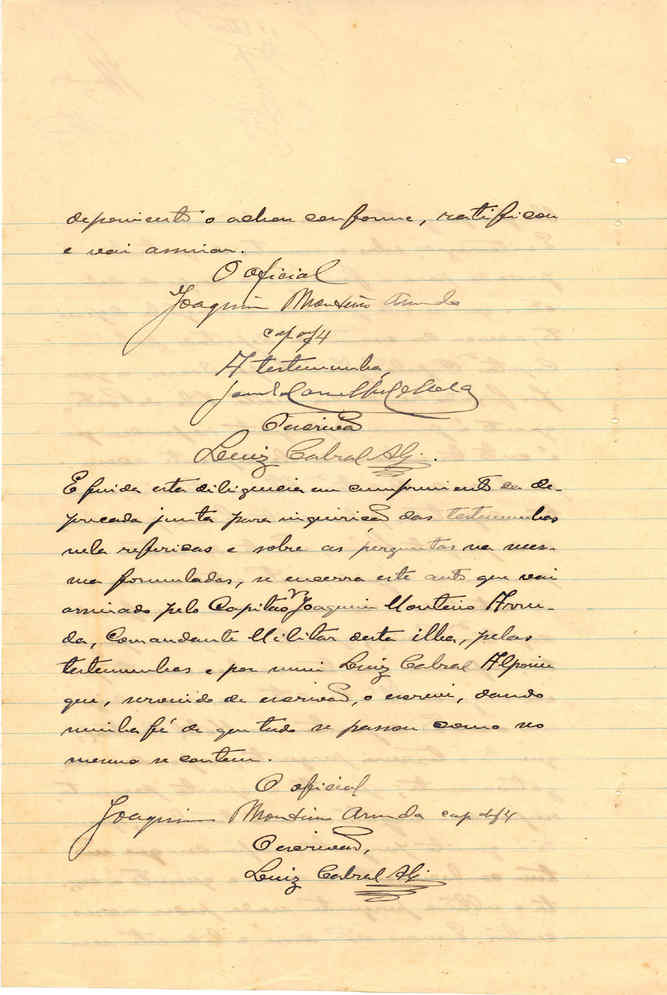 depoimento o achou conforme, ratificou
e vai assinar.
O oficial
Joaquim Monteiro Arruda
cap
A testemunha,
O escrivão
Luiz Cabral Alp.
E finda esta diligencia em cumprimento da de-
precada junta para inquirição das testemunhas
nela referidas e sobre as perguntas na mes-
ma formuladas, se encerra este auto que vai
assinado pelo Capitão Joaquim Monteiro Arru-
da, Comandante Militar desta ilha, pelas
testemunhas e por mim Luiz Cabral Alpoim
que, servindo de escrivão, o escrevi, dando
minha fé de que tudo se passou como no
mesmo se contem.
O oficial
Joaquim Monteiro Arruda cap
O escrivão,
Luiz Cabral Alp.